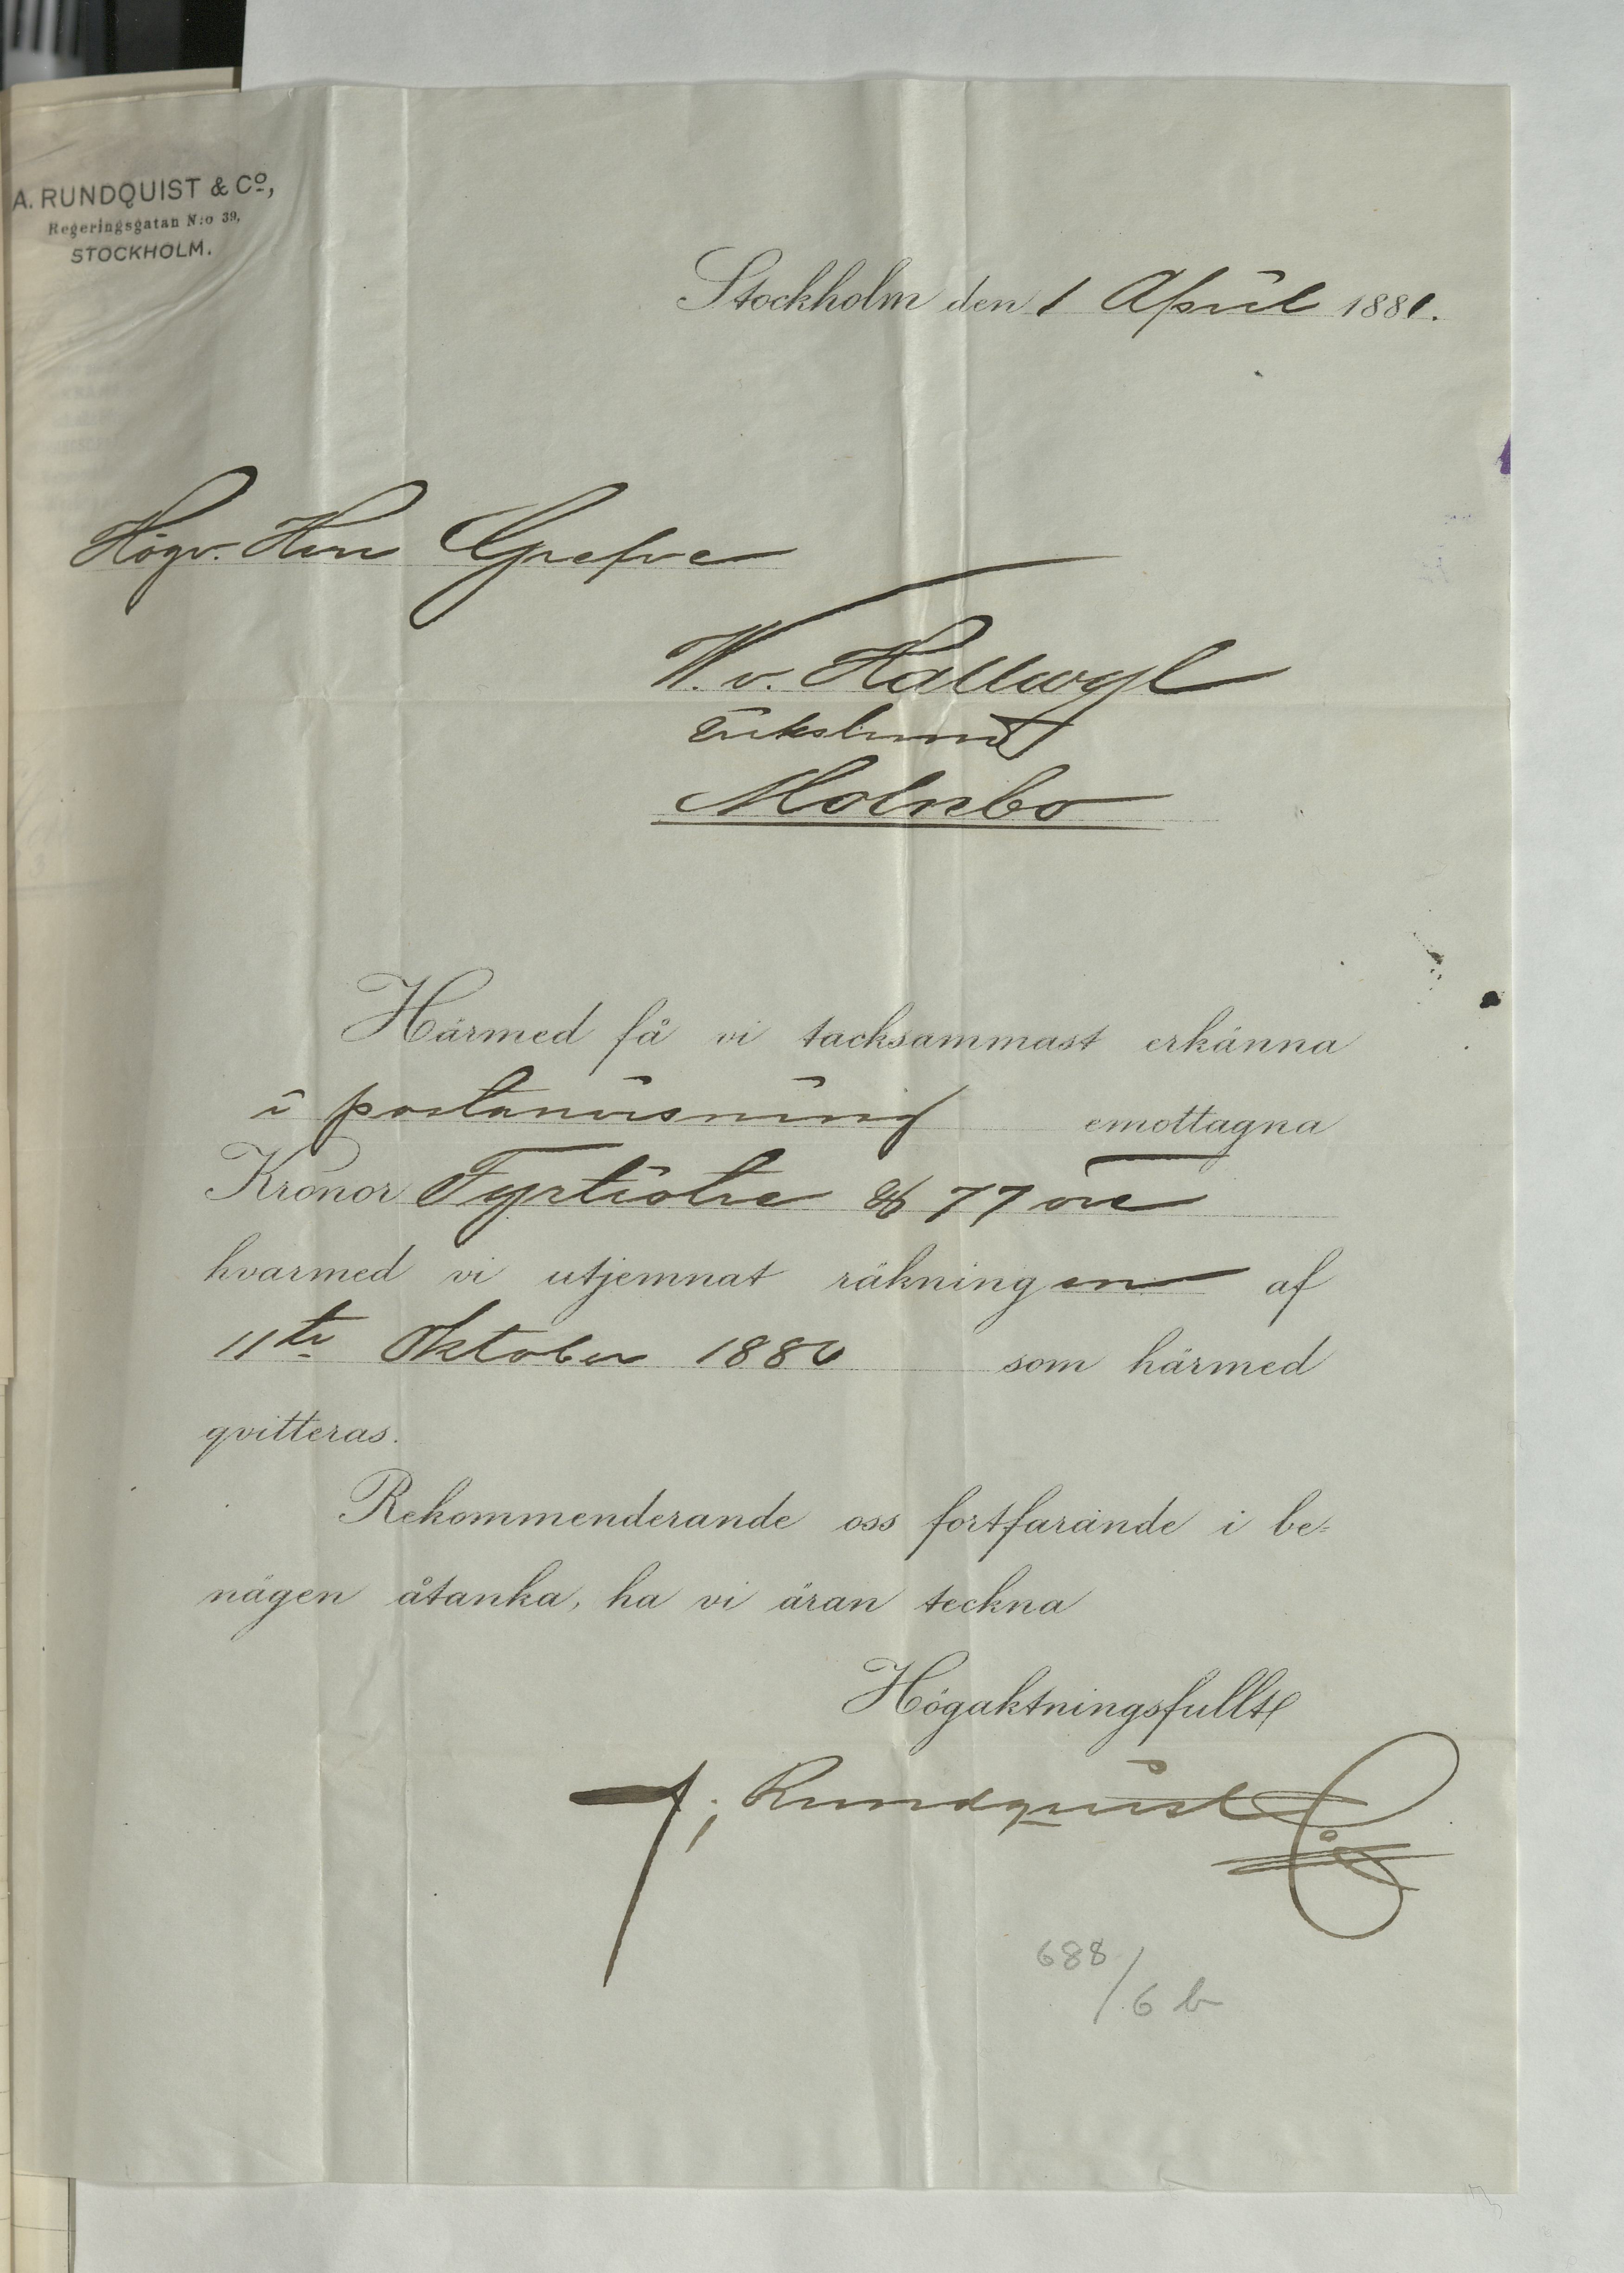 A. RUNDQUIST & Co,
Regeringsgatan N:o 39,
STOCKHOLM.
Stockholm den 1 April 1881.
Högv. Herr Grefve
W. v. Hallwyl
Erikslund
Molnbo
Härmed få vi tacksammast erkänna
i postanvisning emottagna
Kronor Fyrtiotre & 77 öre
hvarmed vi utjemnat räkningen af
11te Oktober 1880 som härmed
qvitteras.
Rekommenderande oss fortfarande i be=
nägen åtanka, ha vi äran teckna
Högaktningsfullt
A; Rundquist & Co
688/6 b